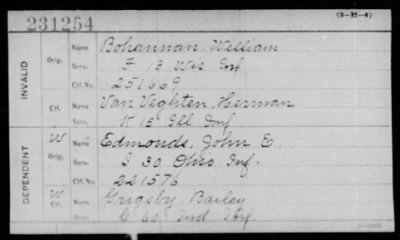 231254
(3-H-4)
INVALID
Orig.
Name
Bohannan, William
Serv.
F 13 Wis Inf
Ctf. No.
251669
Ctf.
Name
Van Veghten, Herman
Serv.
K 15 Ill Inf
DEPENDENT
W
Orig.
Name
Edmonds, John E.
Serv.
I 30 Ohio Inf.
Ctf. No.
221576
W
Ctf.
Name
Grigsby, Bailey
Serv.
C 60 Ind Inf